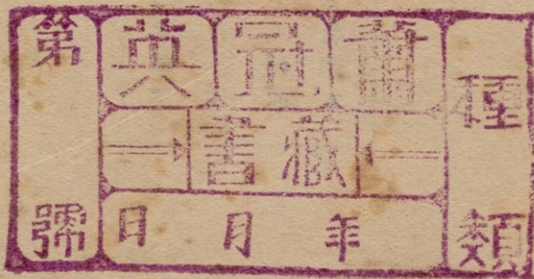 種類
蕭冠英
藏書
年月日
第號